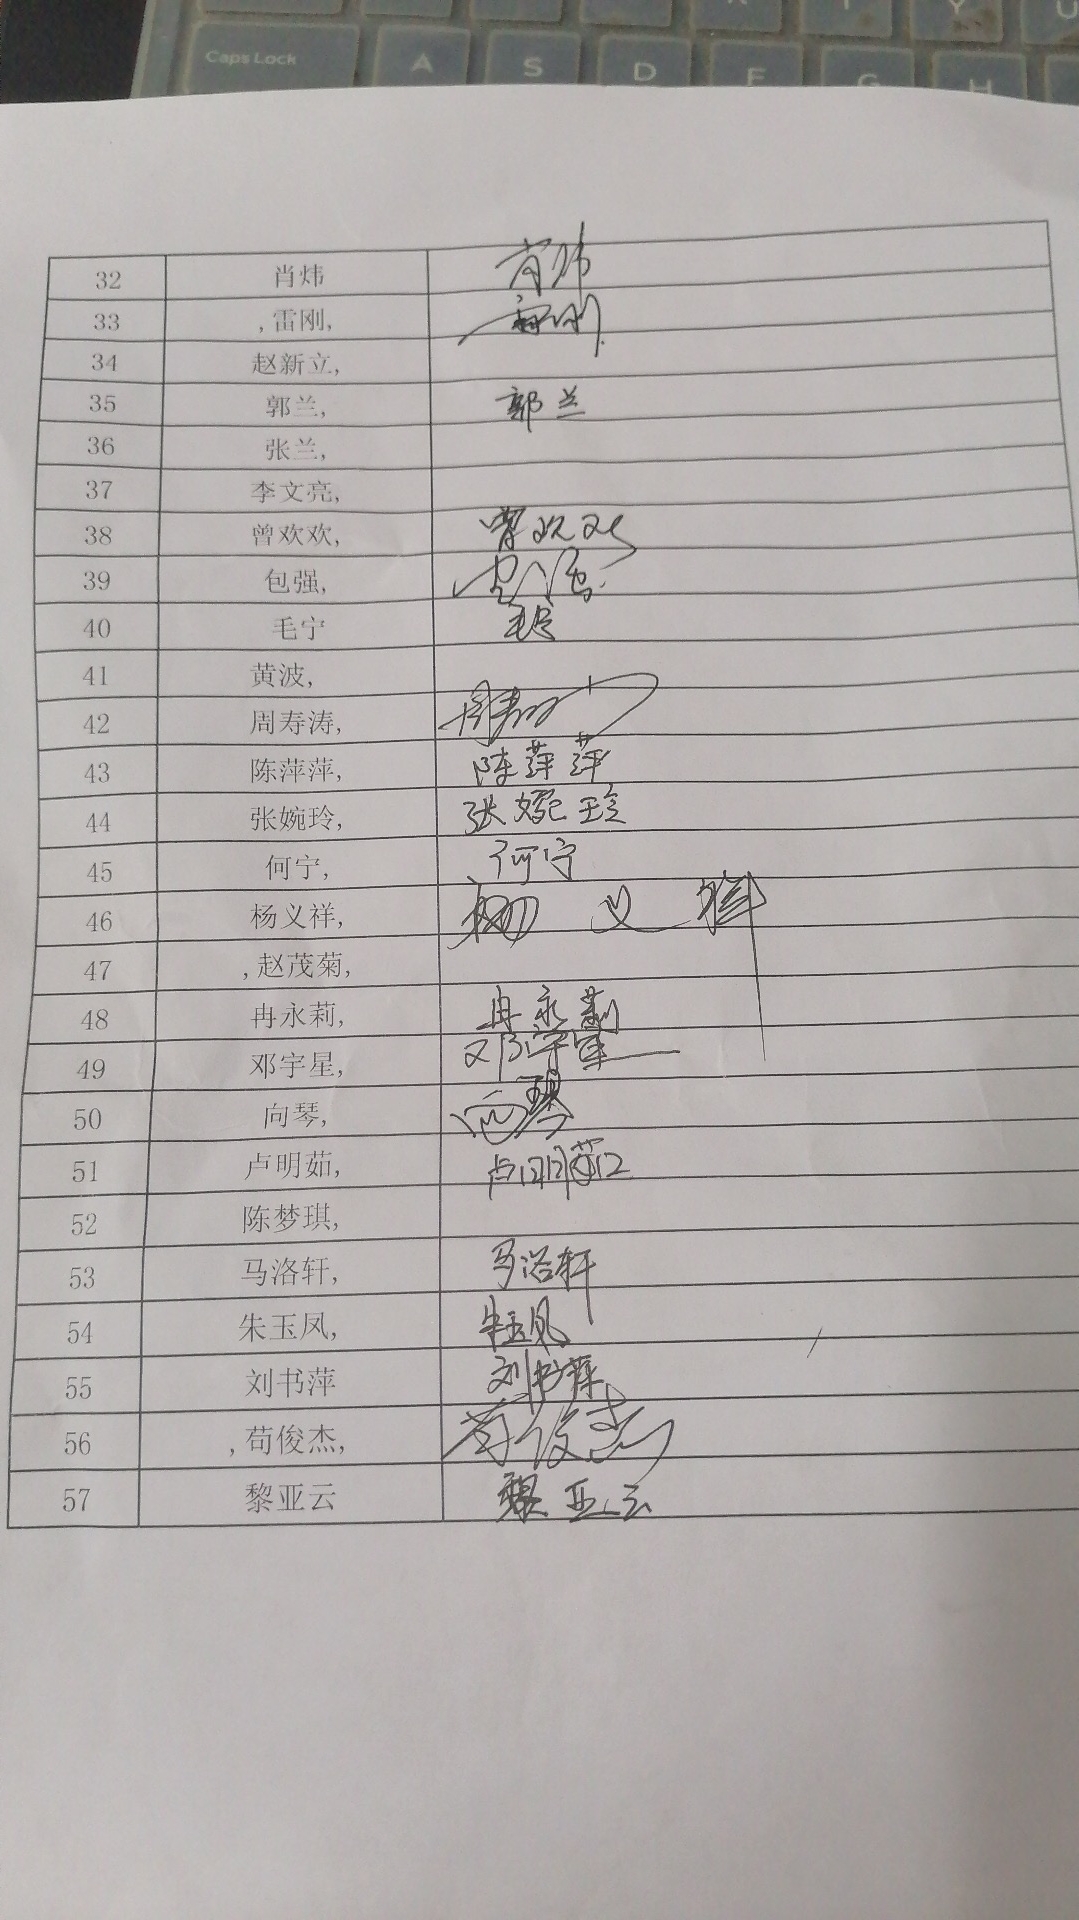 Caps Lock A S D F G H
32 肖炜 肖炜
33 ,雷刚, 雷刚
34 赵新立,
35 郭兰, 郭兰
36 张兰,
37 李文亮,
38 曾欢欢, 曾欢欢
39 包强, 包强
40 毛宁 毛宁
41 黄波,
42 周寿涛, 周寿涛
43 陈萍萍, 陈萍萍
44 张婉玲, 张婉玲
45 何宁, 何宁
46 杨义祥, 杨义祥
47 ,赵茂菊,
48 冉永莉, 冉永莉
49 邓宇星, 邓宇星
50 向琴, 向琴
51 卢明茹, 卢明茹
52 陈梦琪,
53 马洛轩, 马洛轩
54 朱玉凤, 朱玉凤
55 刘书萍 刘书萍
56 ,苟俊杰, 苟俊杰
57 黎亚云 黎亚云